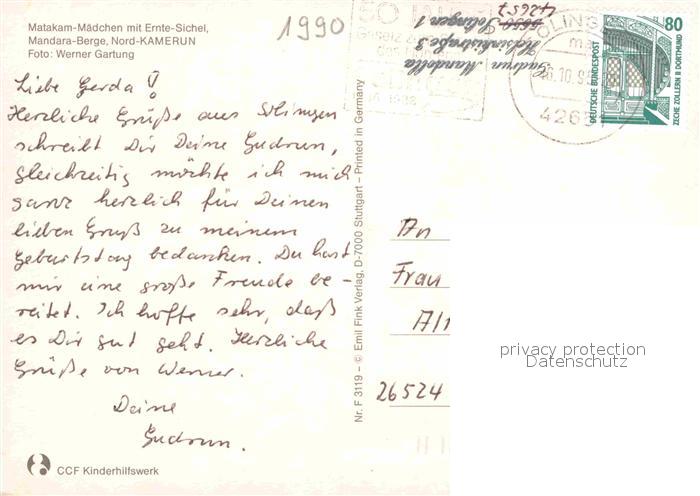 Matakam-Mädchen mit Ernte-Sichel,
Mandara-Berge, Nord-KAMERUN
Foto: Werner Gartung
1990
Liebe Gerda !
Herzliche Grüße aus Solingen
schreibt Dir Deine Gudrun,
gleichzeitig möchte ich mich
ganz herzlich für Deinen
lieben Gruß zu meinem
Geburtstag bedanken. Du hast
mir eine große Freude be-
reitet. Ich hoffe sehr, daß
es Dir gut geht. Herzliche
Grüße von Werner.
Deine
Gudrun.
CCF Kinderhilfswerk
Nr. F 3119 – © Emil Fink Verlag, D-7000 Stuttgart – Printed in Germany
Gudrun Mandella
Helsinkistraße 3
5650 Solingen 1
42657
SOLING
10.9
42651
80
DEUTSCHE BUNDESPOST
ZECHE ZOLLERN II DORTMUND
An
Frau
26524
privacy protection
Datenschutz